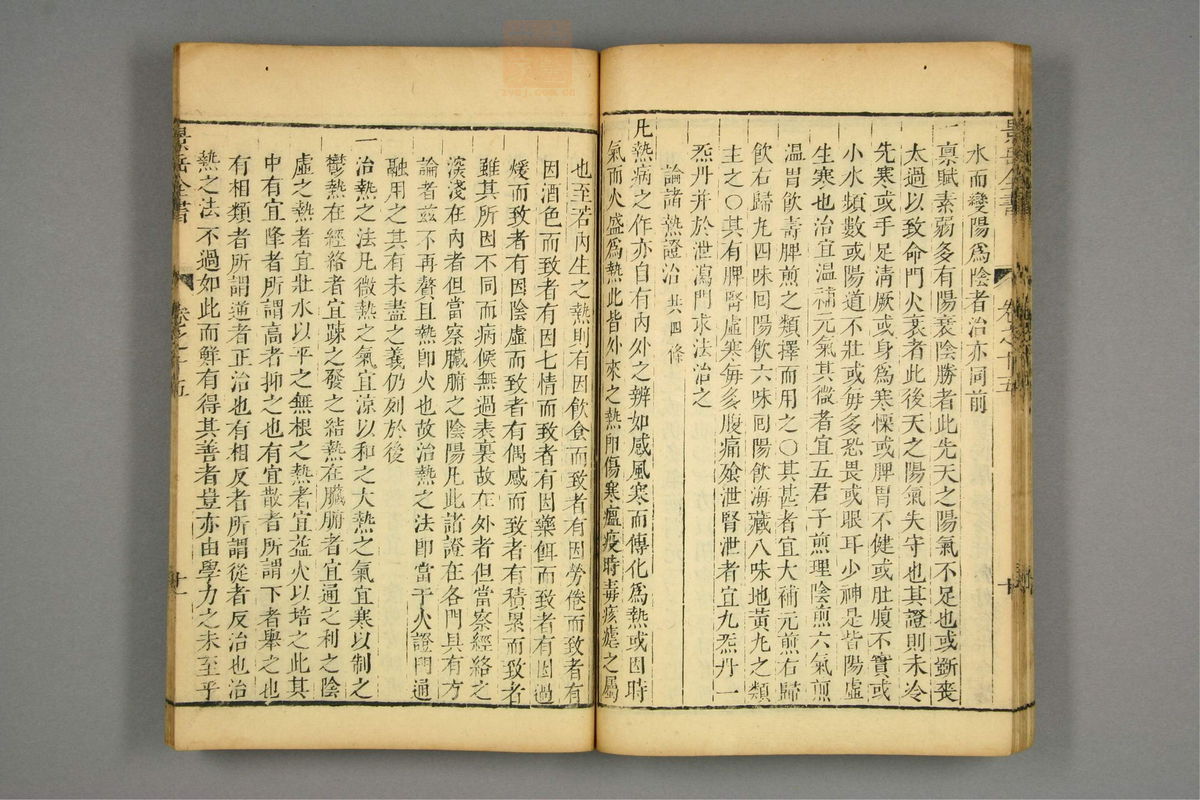 水而變陽爲陰者治亦同前
一稟賦素弱多有陽衰陰勝者此先天之陽氣不足也或斲喪
太過以致命門火衰者此後天之陽氣失守也其證則未冷
先寒或手足淸厥或身爲寒慄或脾胃不健或肚腹不實或
小水頻數或陽道不壯或每多恐畏或眼耳少神是皆陽虛
生寒也治宜溫補元氣其微者宜五君子煎理陰煎六氣煎
溫胃飲壽脾煎之類擇而用之○其甚者宜大補元煎右歸
飲右歸丸四味回陽飲六味回陽飲海藏八味地黃丸之類
主之○其有脾腎虛寒每多腹痛飱泄腎泄者宜九炁丹一
炁丹并於泄瀉門求法治之
論諸熱證治 共四條
凡熱病之作亦自有內外之辨如感風寒而傳化爲熱或因時
氣而火盛爲熱此皆外來之熱卽傷寒瘟疫時毒痎瘧之屬
也至若內生之熱則有因飲食而致者有因勞倦而致者有
因酒色而致者有因七情而致者有因藥餌而致者有因過
煖而致者有因陰虛而致者有偶感而致者有積累而致者
雖其所因不同而病候無過表裏故在外者但當察經絡之
深淺在內者但當察臟腑之陰陽凡此諸證在各門具有方
論者玆不再贅且熱卽火也故治熱之法卽當于火證門通
融用之其有未盡之義仍列於後
一治熱之法凡微熱之氣宜涼以和之大熱之氣宜寒以制之
鬱熱在經絡者宜踈之發之結熱在臟腑者宜通之利之陰
虛之熱者宜壯水以平之無根之熱者宜益火以培之此其
中有宜降者所謂高者抑之也有宜散者所謂下者舉之也
有相類者所謂逆者正治也有相反者所謂從者反治也治
熱之法不過如此而鮮有得其善者豈亦由學力之未至乎
景岳全書
卷之十五